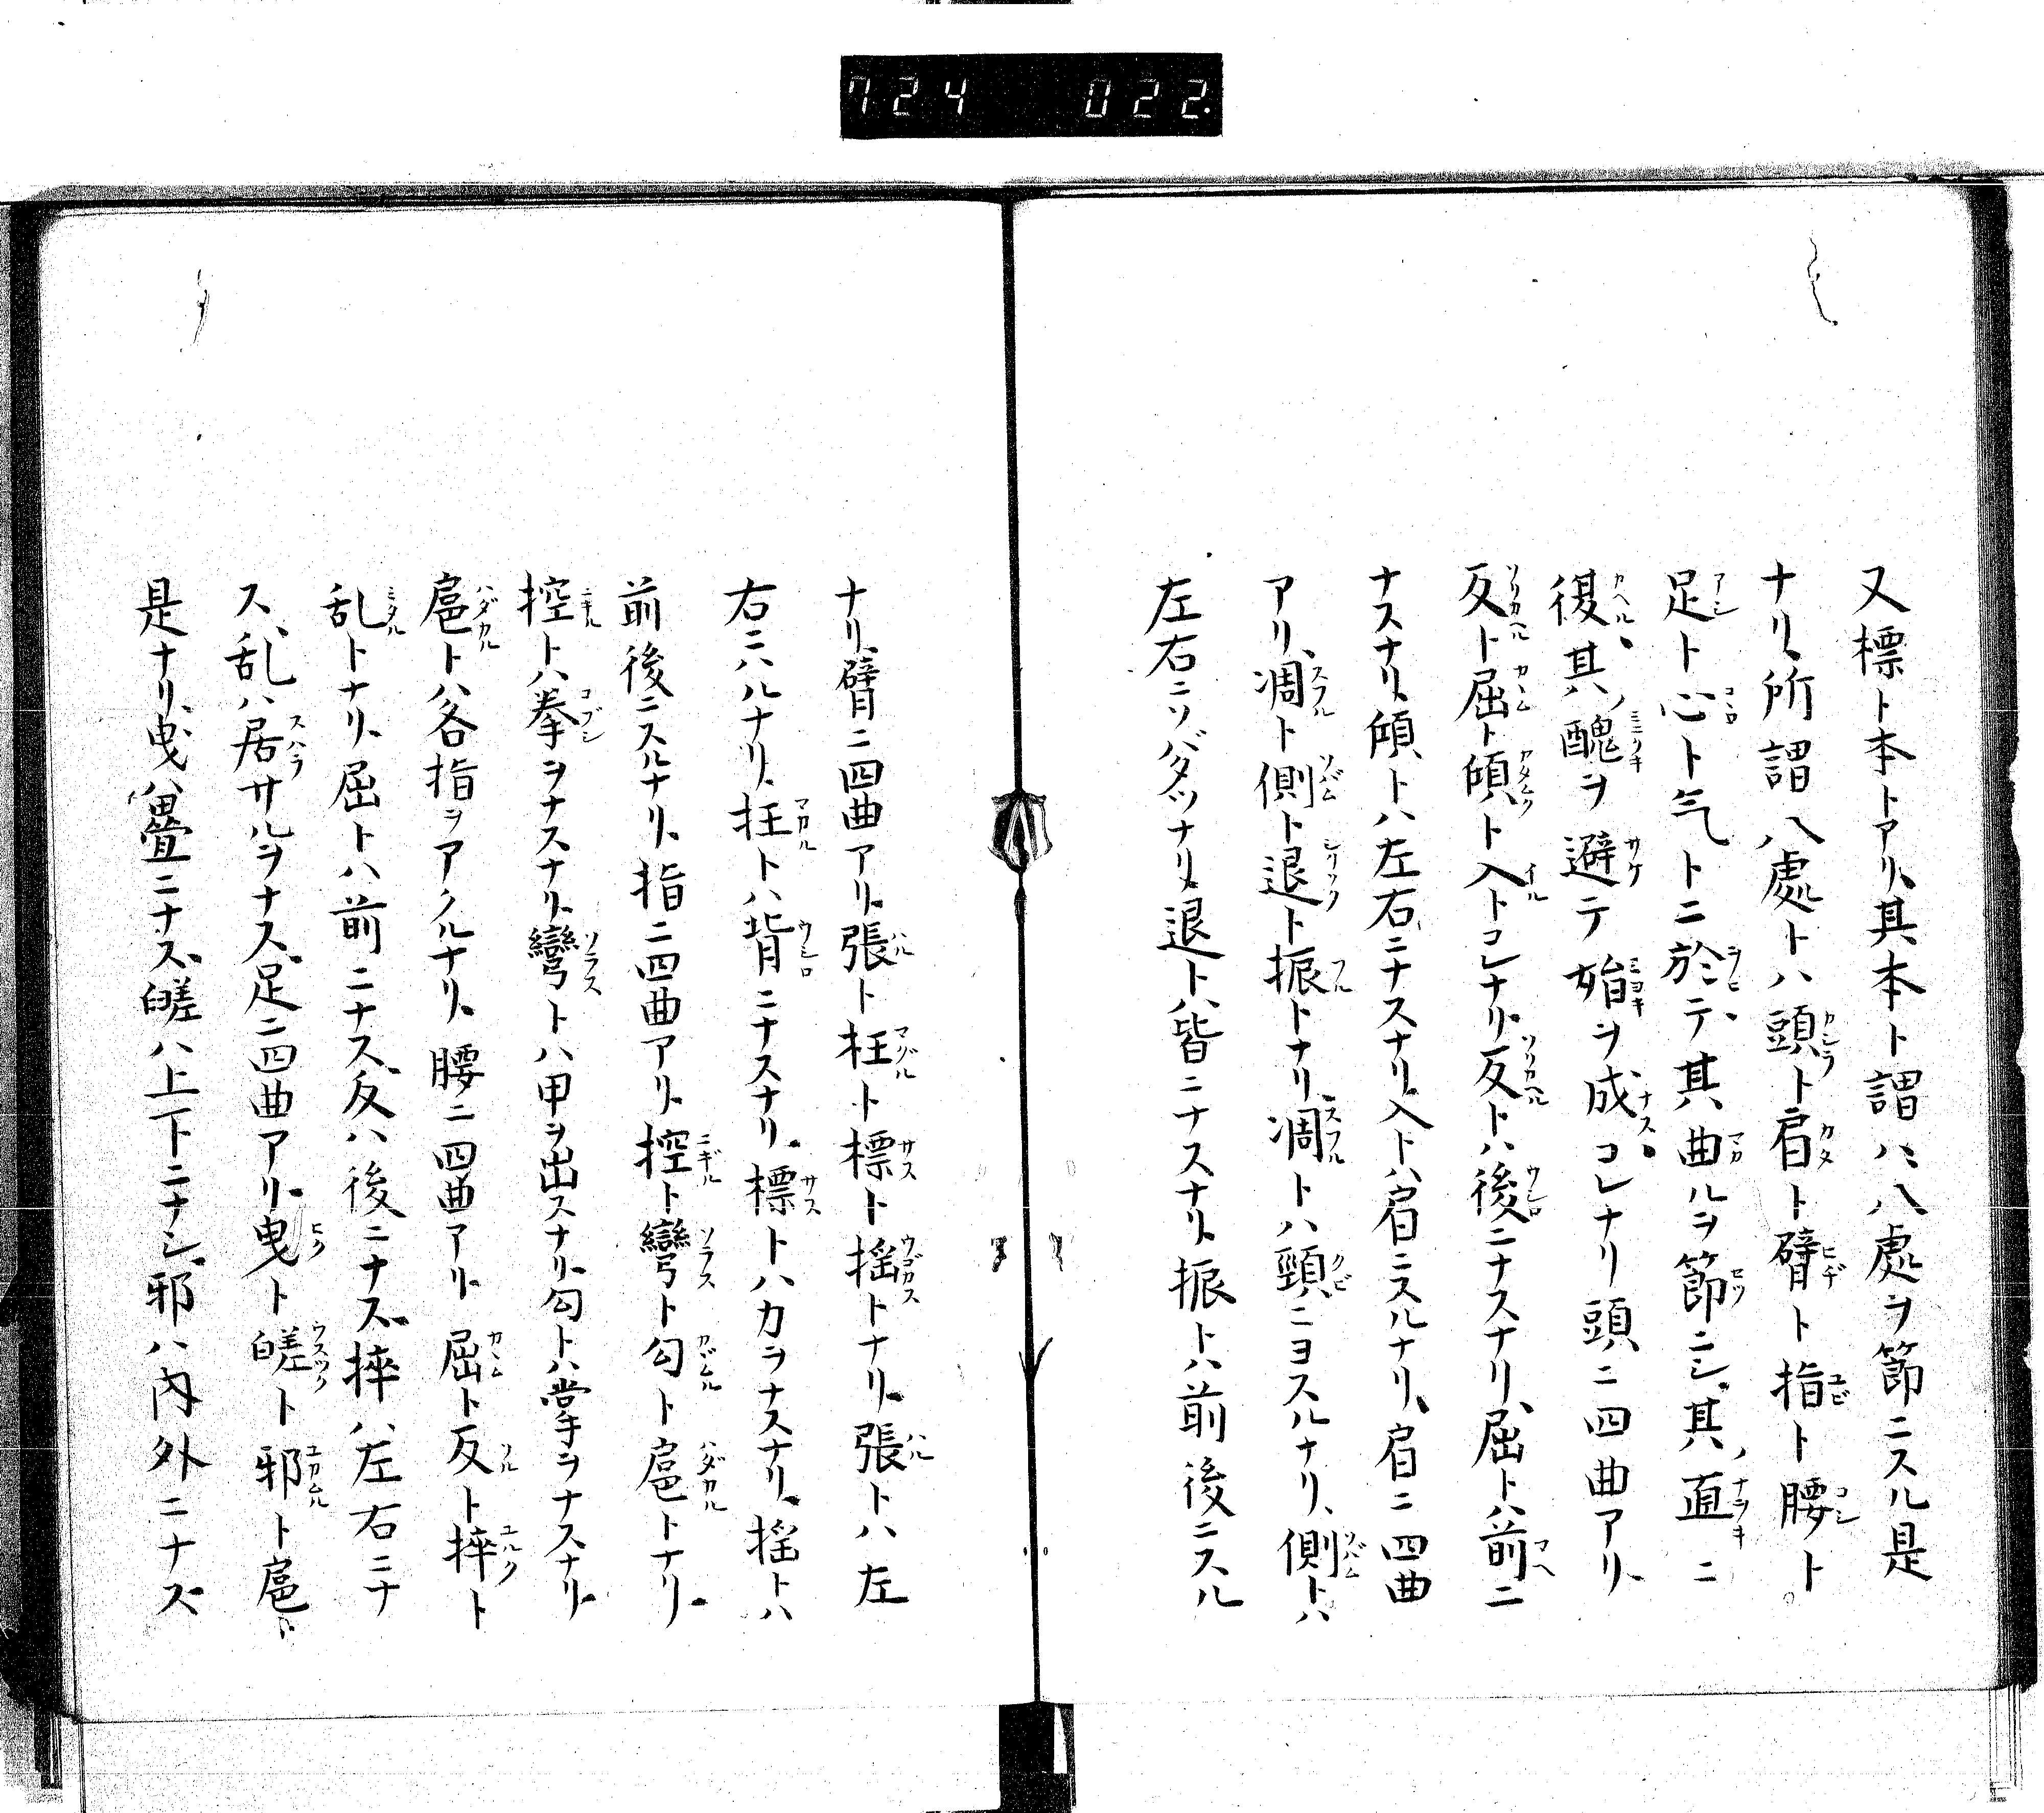 724 022
又標ト本トアリ、其本ト謂ハ、八處ヲ節ニスル是
ナリ、所謂八處トハ頭ト肩ト臂ト指ト腰ト
足ト心ト气トニ於テ、其曲ルヲ節ニシ、其直ニ
復、其醜ヲ避テ始ヲ成、コレナリ頭ニ四曲アリ、
反ト屈ト傾ト入トコレナリ、反トハ後ニナスナリ、屈トハ前ニ
ナスナリ、傾トハ左右ニナスナリ、入トハ肩ニスルナリ、肩ニ四曲
アリ、凋ト側ト退ト振トナリ、凋トハ頸ニヨスルナリ、側トハ
左右ニソバダツナリ、退トハ皆ニナスナリ、振トハ前後ニスル
ナリ、臂ニ四曲アリ、張ト枉ト標ト揺トナリ、張トハ左
右ニハルナリ、枉トハ背ニナスナリ、標トハカヲナスナリ、揺トハ
前後ニスルナリ、指ニ四曲アリ、控ト彎ト勾ト扈トナリ、
控トハ拳ヲナスナリ、彎トハ甲ヲ出スナリ、勾トハ掌ヲナスナリ、
扈トハ各指ヲアクルナリ、腰ニ四曲アリ、屈ト反ト捽ト
乱トナリ、屈トハ前ニナス、反ハ後ニナス、捽ハ左右ニナ
ス、乱ハ居サルヲナス、足ニ四曲アリ、曳ト皠ト邪ト扈ト
是ナリ、曳ハ疊ニナス、皠ハ上下ニナシ、邪ハ内外ニナス、